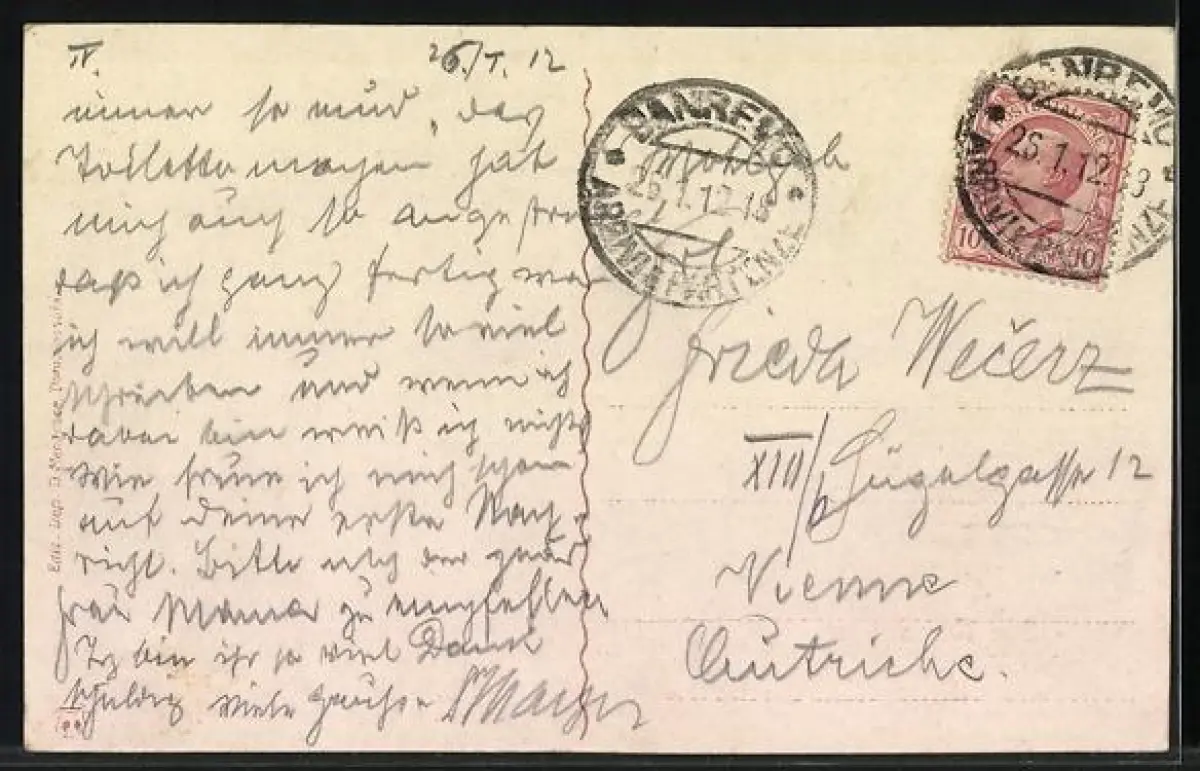 IV. 26./I. 12
immer so müd, das
Toilette machen hat
mich auch so angestren
daß ich ganz fertig war
ich will immer so viel
schreiben und wenn ich
dabei bin weiß ich nichts
Wie freue ich mich schon
auf deine erste Nach-
richt. Bitte mich der gnäd
Frau Mama zu empfehlen
Ich bin ihr so viel Dank
schuldig viele
SANREMO
25.1.12.18
ARRIVI E PARTENZE
SANREMO
25.1.12.18
ARRIVI E PARTENZE
10 10
Frieda Wečerz
XIII/6 Hügelgasse 12
Vienne
Autriche.